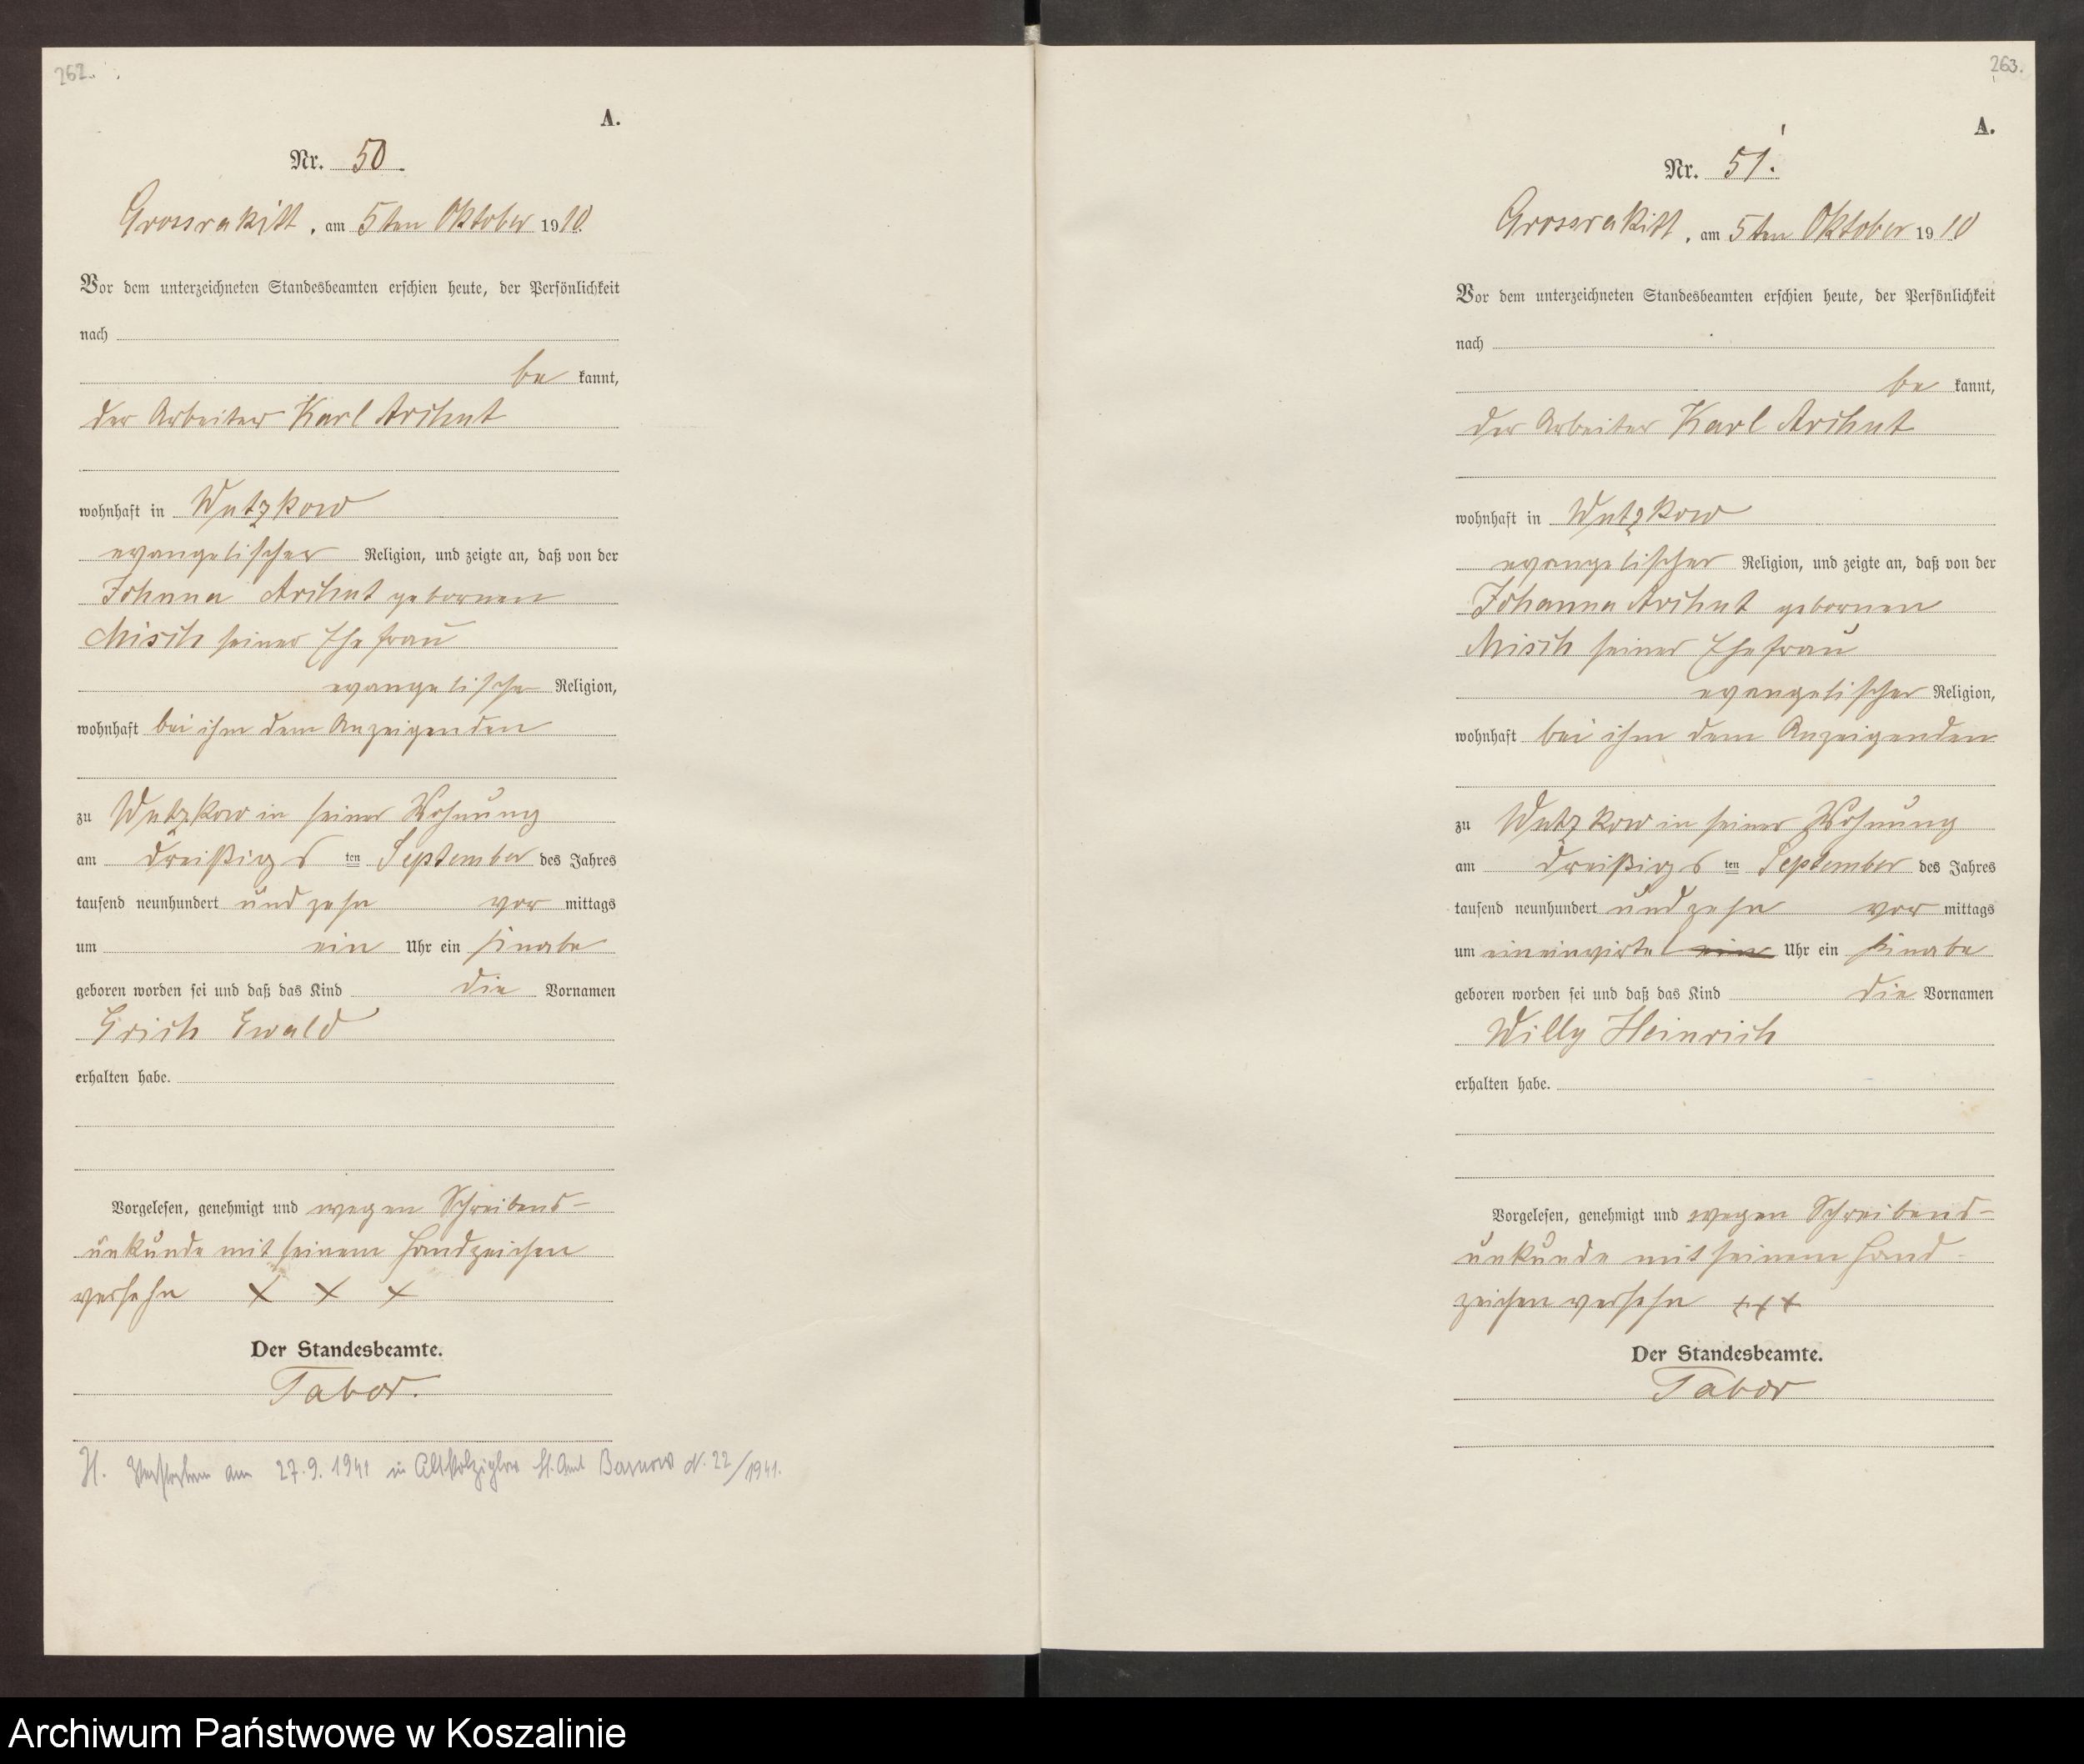 262.
A.
Nr. 50.
Grossrakitt, am 5ten Oktober 1910.
Vor dem unterzeichneten Standesbeamten erschien heute, der Persönlichkeit
nach
be kannt,
der Arbeiter Karl Arihnt
wohnhaft in Wutzkow
evangelischer Religion, und zeigte an, daß von der
Johanna geborenen
Misch seiner Ehefrau
evangelische Religion,
wohnhaft bei ihm dem Anzeigenden
zu Wutzkow in seiner Wohnung
am dreißigs ten September des Jahres
tausend neunhundert und zehn vor mittags
um ein Uhr ein Knabe
geboren worden sei und daß das Kind die Vornamen
Erich Ewald
erhalten habe.
Vorgelesen, genehmigt und wegen Schreibens-
unkunde mit seinem Handzeichen
versehn X X X
Der Standesbeamte.
Tabor.
H. Verstorben am 27.9.1941 in St. Amt Barnow N. 22/1941.
263.
A.
Nr. 51.
Grossrakitt, am 5ten Oktober 1910
Vor dem unterzeichneten Standesbeamten erschien heute, der Persönlichkeit
nach
be kannt,
der Arbeiter Karl
wohnhaft in Wutzkow
evangelischer Religion, und zeigte an, daß von der
Johanna gebornen
Misch seiner Ehefrau
evangelischer Religion,
wohnhaft bei ihm dem Anzeigenden
zu Wutzkow in seiner Wohnung
am dreißigs ten September des Jahres
tausend neunhundert und zehn vor mittags
um eineinvirtel ein Uhr ein Knabe
geboren worden sei und daß das Kind die Vornamen
Willy Heinrich
erhalten habe.
Vorgelesen, genehmigt und wegen Schreibens-
unkunde mit seinem Hand-
zeichen versehn +++
Der Standesbeamte.
Tabor
Archiwum Państwowe w Koszalinie